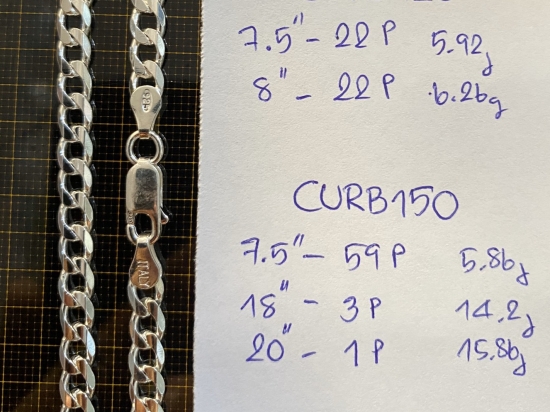 7.5" - 22 P 5.92g
8" - 22 P 6.26g
CURB150
7.5" - 59 P 5.86g
18" - 3 P 14.2g
20" - 1 P 15.86g
925
ITALY